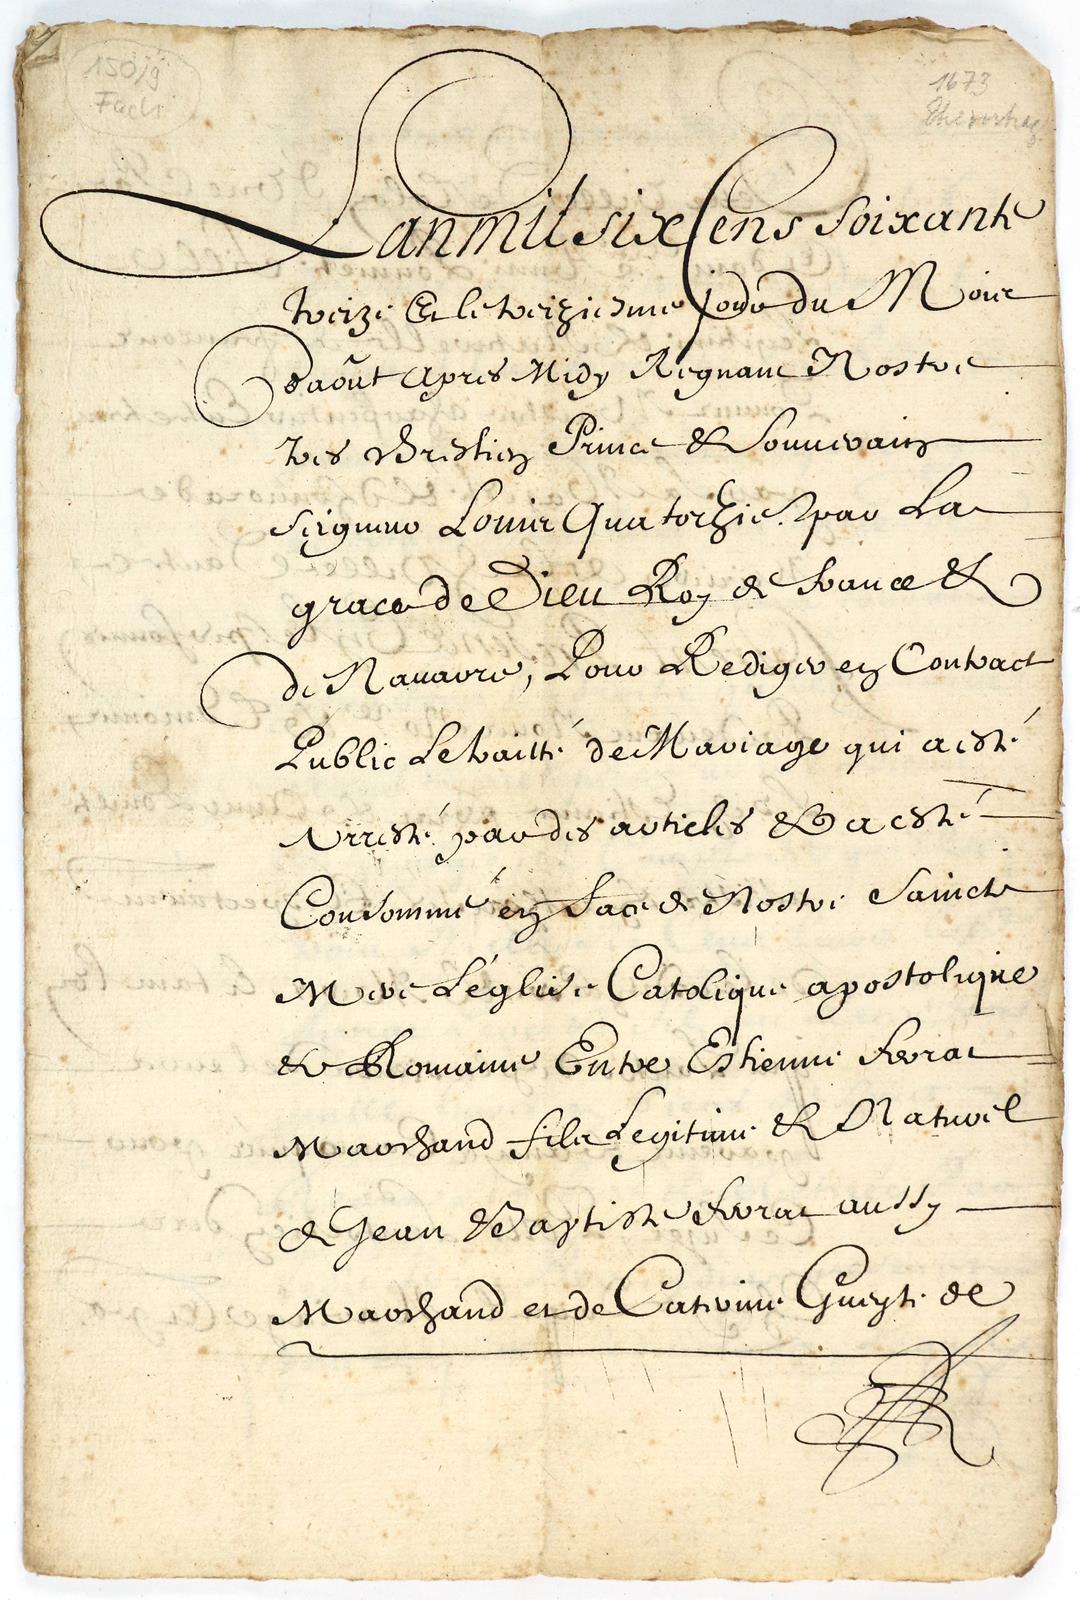 150/9
Fach
1673
Lan mil six Cens soixante
treize Et le treiziesme jour du Mois
daoût apres Midy Regnant Nostre
tres Chrestien Prince & Souuerain
seigneur Louis Quatorzie. par La
grace de Dieu Roy de france &
de Nauarre, Pour Rediger en Contract
Public Le traitté de Mariage qui a esté
Arresté par des articles & a esté
Consommé en face de Nostre Saincte
Mere L'églize Catolique apostolique
& Romaine Entre Estienne
Marchand fils Legitime & Naturel
de Jean Baptiste aussy
Marchand et de Caterine de